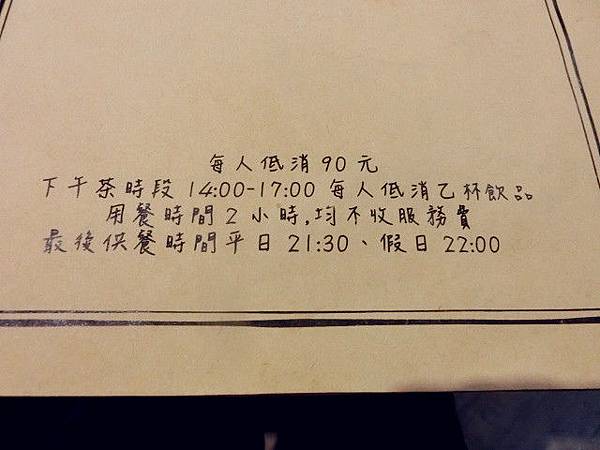 每人低消90元
下午茶時段 14:00-17:00 每人低消乙杯飲品
用餐時間2小時,均不收服務費
最後供餐時間平日 21:30、假日 22:00